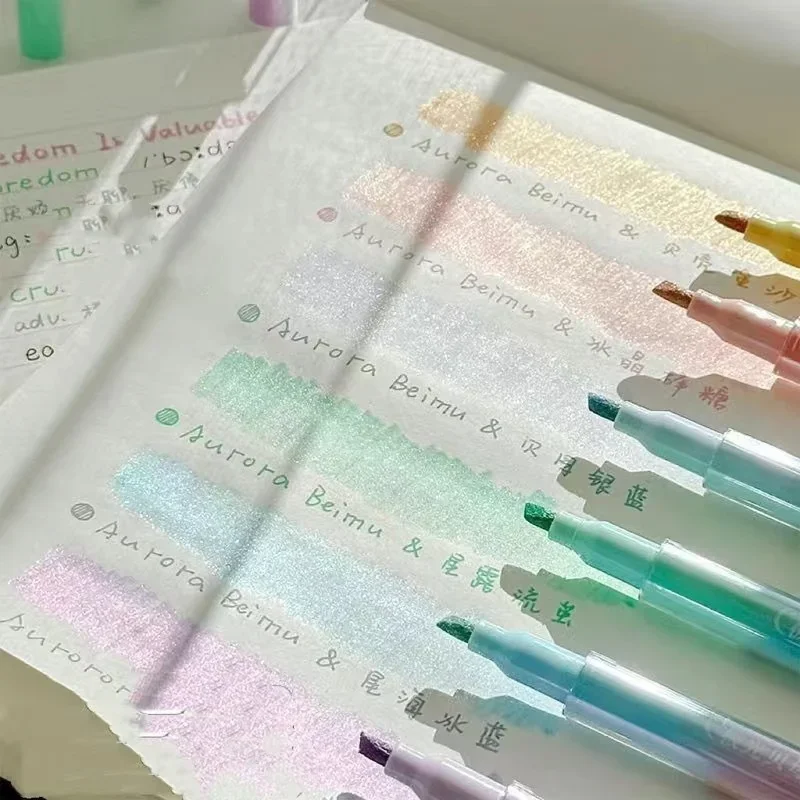 edom Is Valuable
redom /'bɔ:d
无聊
ru.
cru.
adv.
eo
Aurora Beimu & 贝壳
Aurora Beimu & 冰晶 砂糖
Aurora Beimu & 贝 银蓝
Aurora Beimu & 星露 流萤
Aurora Beimu & 尾海 冰蓝
Auroror